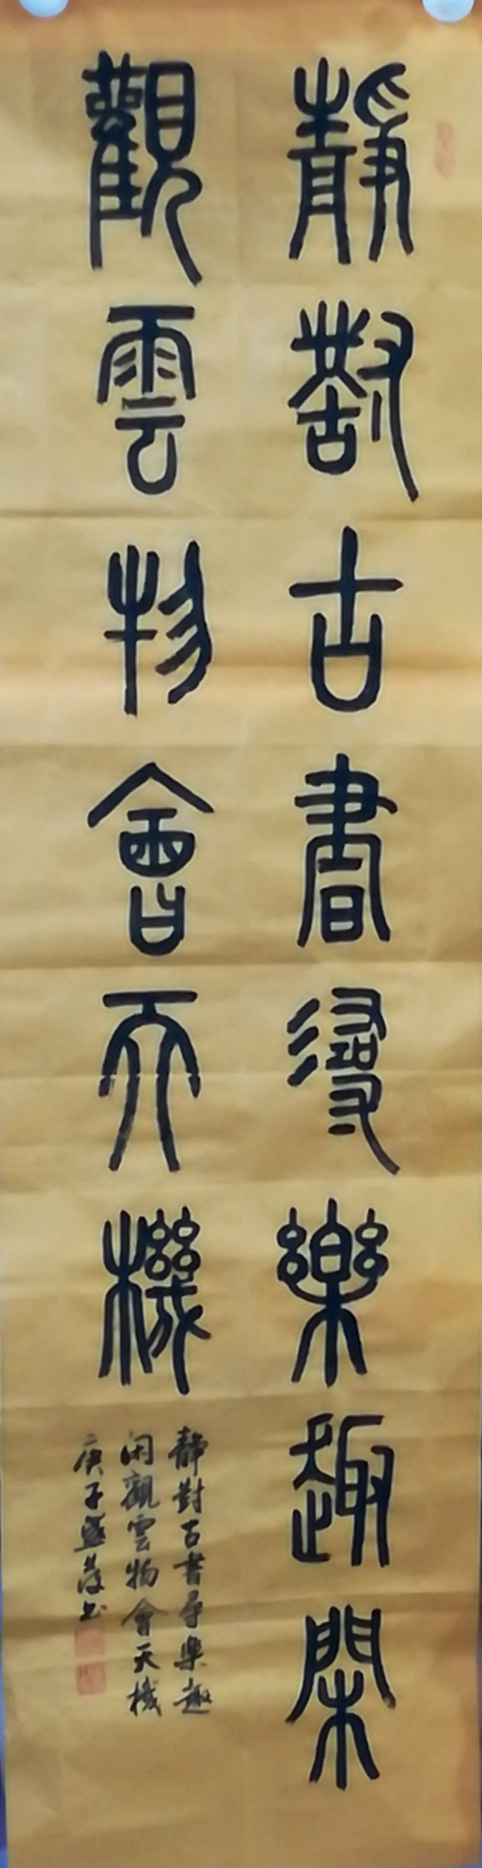 靜對古書尋樂趣閑
觀雲物會天機
靜對古書尋樂趣
闲觀雲物會天機
庚子盛夏書